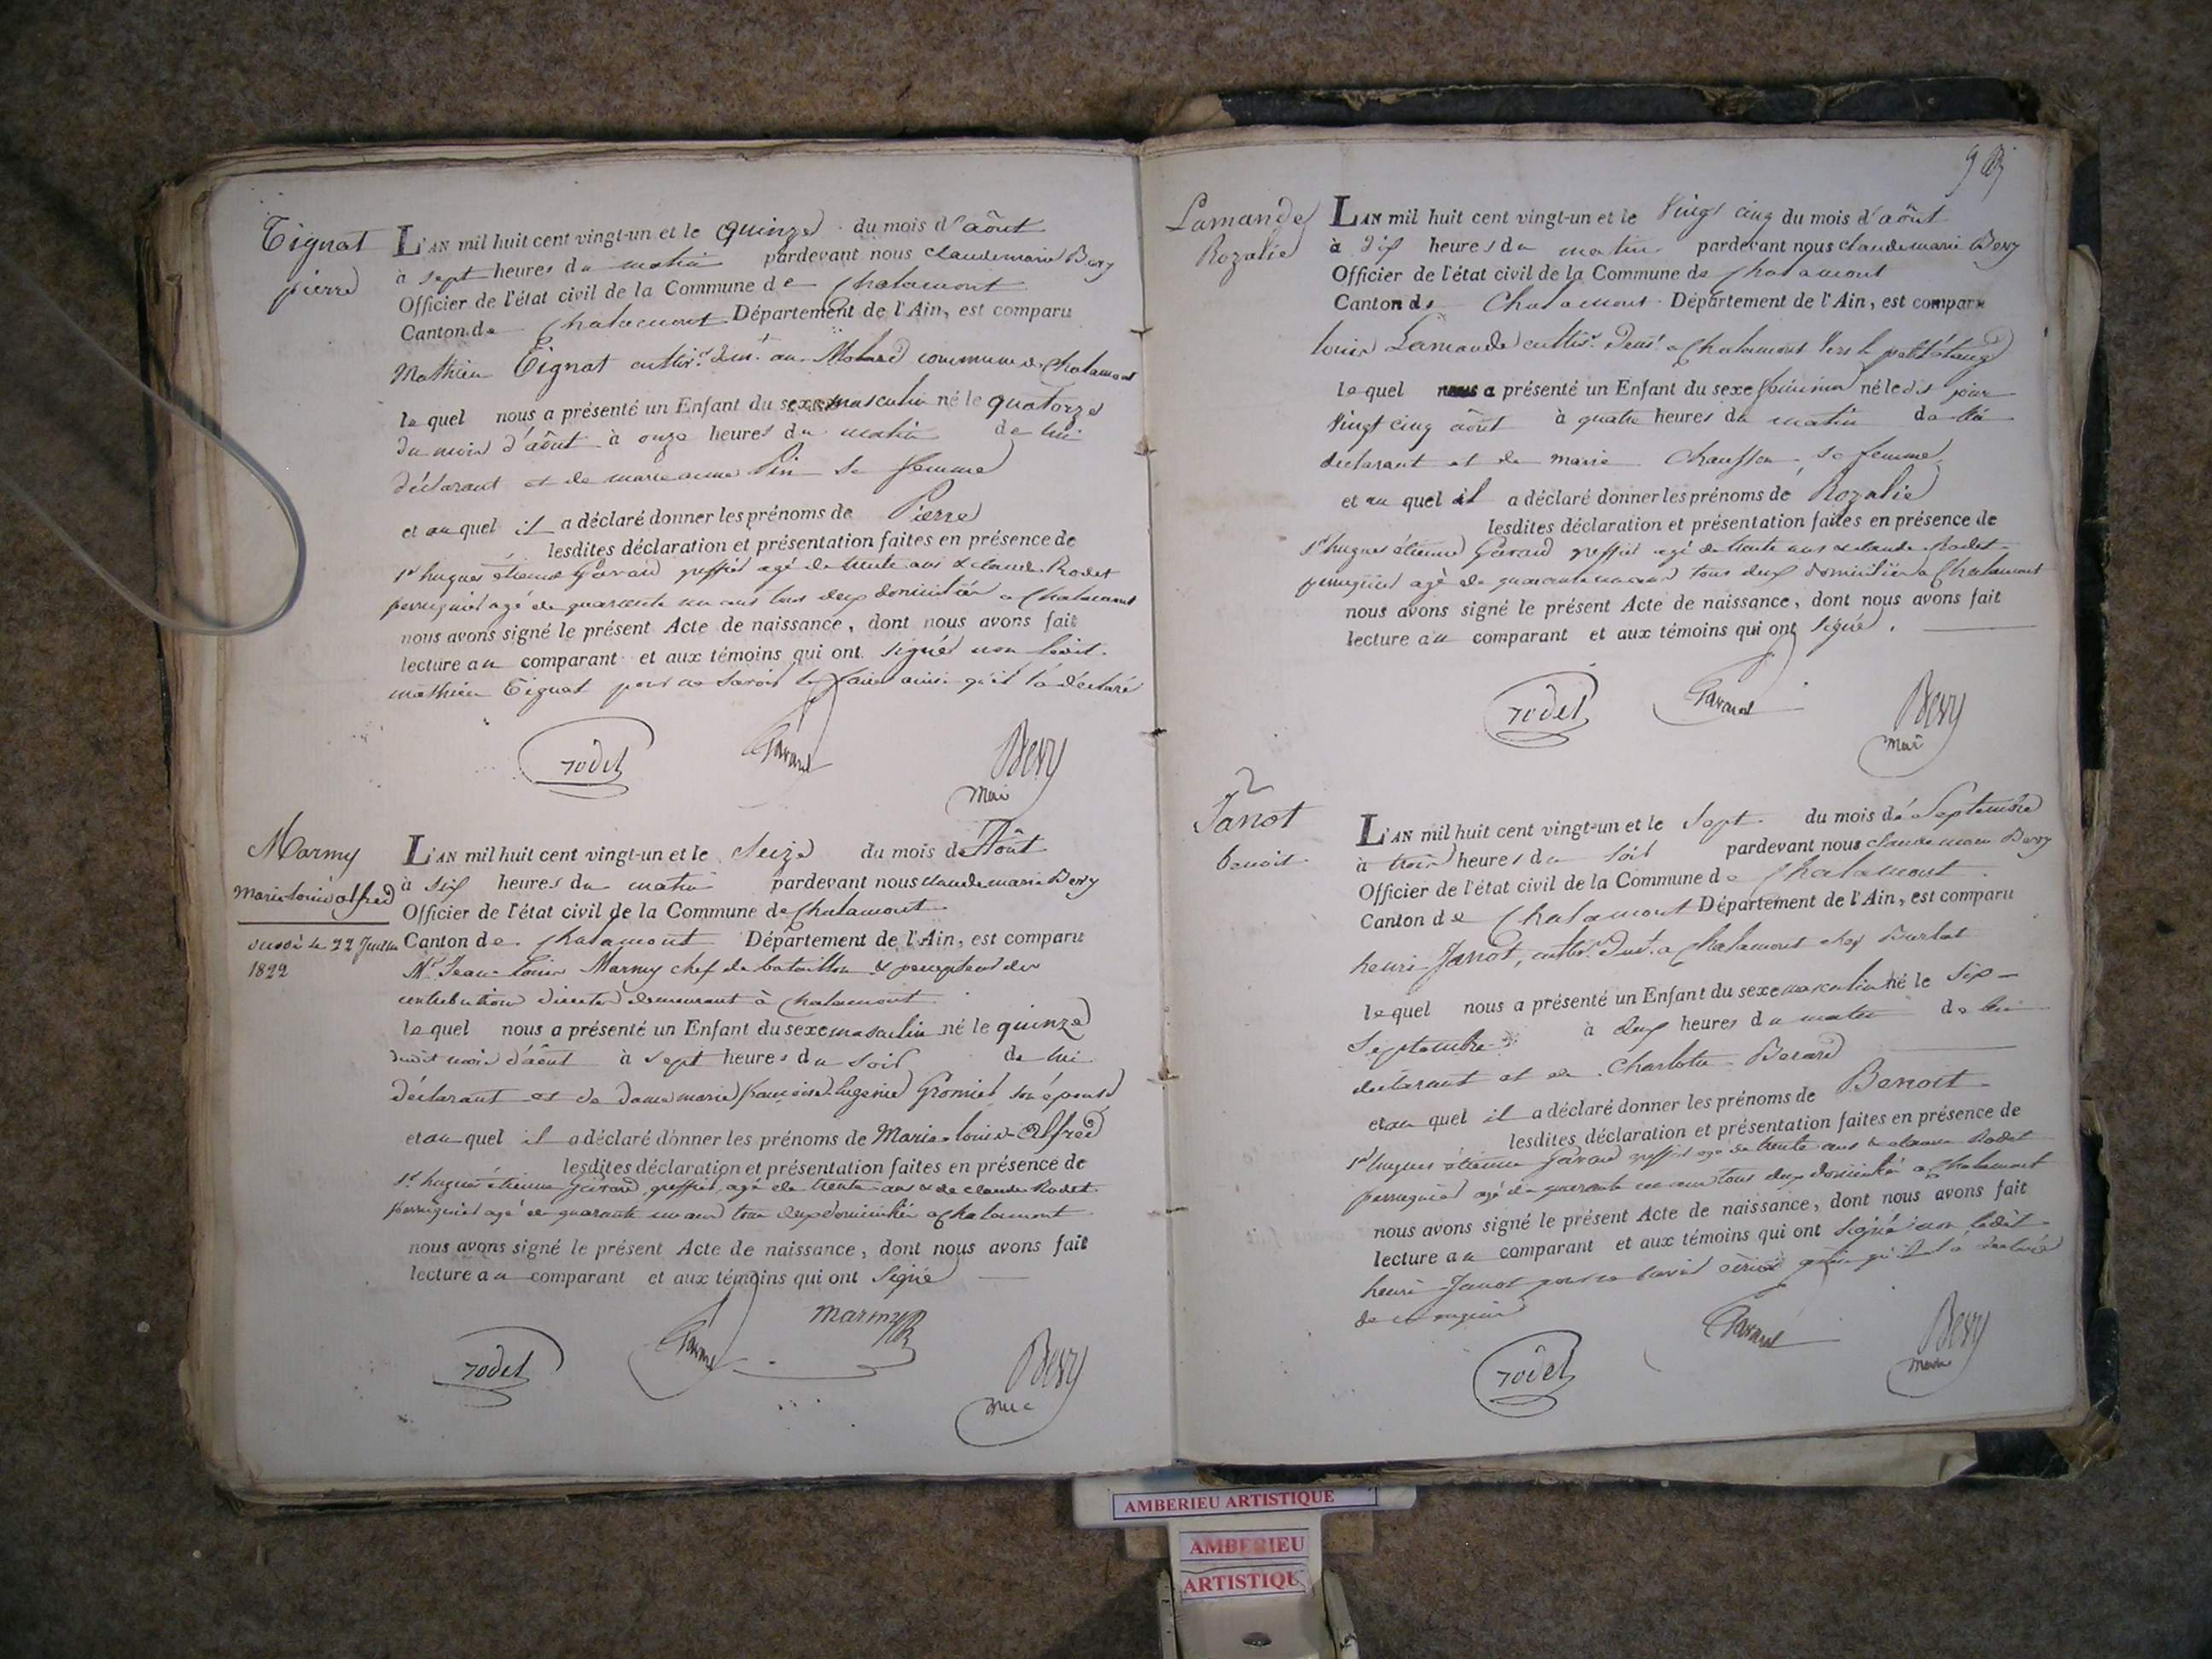 Tignat
pierre
L'AN mil huit cent vingt-un et le quinze du mois d'août
à sept heures du matin pardevant nous claude marie Bevy
Officier de l'état civil de la Commune de Chalamont
Canton de Chalamont Département de l'Ain, est comparu
Mathieu Tignat cultivr. demt. au Molard commune de Chalamont
le quel nous a présenté un Enfant du sexe masculin né le quatorze
du mois d'août à onze heures du matin de lui
déclarant et de marie anne Pin sa femme
et au quel il a déclaré donner les prénoms de Pierre
lesdites déclaration et présentation faites en présence de
sr hugues étienne Gavard greffier agé de trente ans & claude Rodet
perruquier agé de quarante un ans tous deux domiciliés a Chalamont
nous avons signé le présent Acte de naissance, dont nous avons fait
lecture au comparant et aux témoins qui ont signé non ledit
mathieu Tignat pour ne savoir le faire ainsi qu'il l'a déclaré
rodet Gavard Bevy
Marmy
Marie louis alfred
décédé le 22 Juillet
1822
L'AN mil huit cent vingt-un et le Seize du mois d'Août
à dix heures du matin pardevant nous claude marie Bevy
Officier de l'état civil de la Commune de Chalamont
Canton de Chalamont Département de l'Ain, est comparu
Mr. Jean-louis Marmy chef de bataillon & percepteur des
contributions directes demeurant à Chalamont
le quel nous a présenté un Enfant du sexe masculin né le quinze
dudit mois d'août à sept heures du soir de lui
déclarant et de dame marie françoise Eugenie Gromier son épouse
et au quel il a déclaré donner les prénoms de Marie-louis-Alfred
lesdites déclaration et présentation faites en présence de
sr. hugues étienne Gavard greffier, agé de trente ans & de claude Rodet
perruquier agé de quarante un ans tous deux domiciliés a Chalamont
nous avons signé le présent Acte de naissance, dont nous avons fait
lecture au comparant et aux témoins qui ont signé
marmy
rodet Gavard Bevy
Lamande
Rozalie
L'AN mil huit cent vingt-un et le Vingt cinq du mois d'août
à dix heures du matin pardevant nous claude marie Bevy
Officier de l'état civil de la Commune de Chalamont
Canton de Chalamont Département de l'Ain, est comparu
louis Lamande cultivr. demt. a Chalamont vers le petit étang
le quel nous a présenté un Enfant du sexe féminin né le dit jour
Vingt cinq août à quatre heures du matin de lui
déclarant et de marie sa femme
et au quel il a déclaré donner les prénoms de Rozalie
lesdites déclaration et présentation faites en présence de
sr hugues étienne Gavard greffier agé de trente ans & claude Rodet
perruquier agé de quarante un ans tous deux domiciliés a Chalamont
nous avons signé le présent Acte de naissance, dont nous avons fait
lecture au comparant et aux témoins qui ont signé.
rodet Gavard Bevy
Janot
benoit
L'AN mil huit cent vingt-un et le Sept du mois de Septembre
à trois heures du soir pardevant nous claude marie Bevy
Officier de l'état civil de la Commune de Chalamont
Canton de Chalamont Département de l'Ain, est comparu
henri Janot, cultivr. demt. a Chalamont chez Burlat
le quel nous a présenté un Enfant du sexe masculin né le Six
Septembre à deux heures du matin de lui
déclarant et de Charlotte Berard
et au quel il a déclaré donner les prénoms de Benoit
lesdites déclaration et présentation faites en présence de
sr hugues étienne Gavard greffier agé de trente ans & claude Rodet
perruquier agé de quarante un ans tous deux domiciliés a Chalamont
nous avons signé le présent Acte de naissance, dont nous avons fait
lecture au comparant et aux témoins qui ont signé non ledit
henri Janot pour ne savoir qu'il l'a déclaré
de ce
rodet Gavard Bevy
AMBERIEU ARTISTIQUE
AMBERIEU
ARTISTIQU